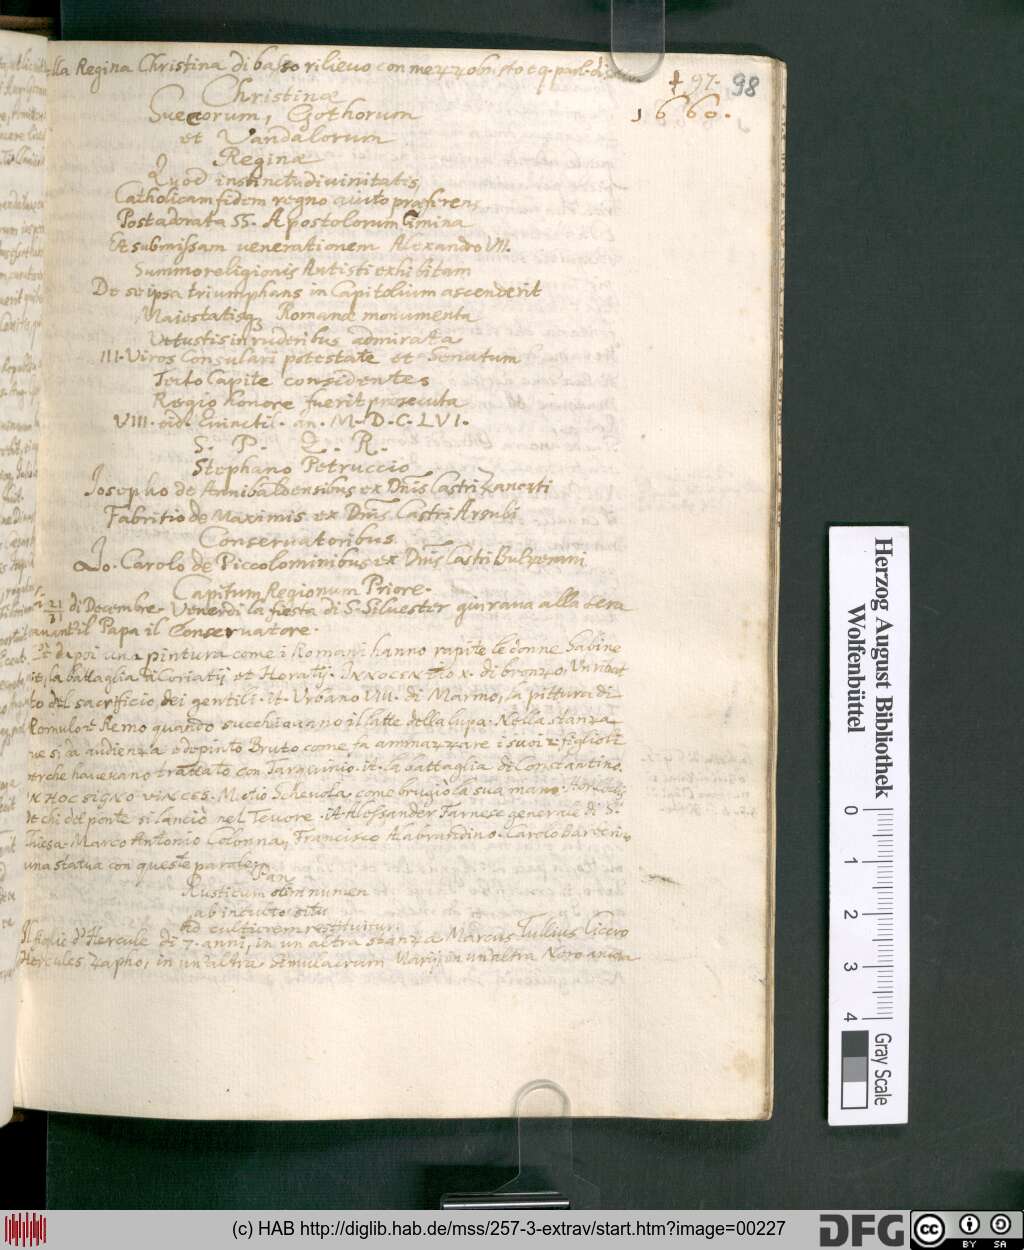 lla Regina Christina di basso rilievo con mezzo busto e q. parl.
† 97. 98
1660.
Christinæ
Suecorum, Gothorum
et Vandalorum
Reginæ
Quod instinctu divinitatis,
Catholicam fidem regno auito præferens
Post adorata SS. Apostolorum limina
Et submissam uenerationem Alexandro VII.
Summo religionis Antisti exhibitam
De se ipsa triumphans in Capitolium ascenderit
Maiestatisq3 Romanæ monumenta
Uetustis in ruderibus admirata
III. Viros Consulari potestate et Senatum
Tecto Capite considentes
Regio honore fuerit prosecuta
VIII. eid. Quinctil. an. M. D. C. LVI.
S. P. Q. R.
Stephano Petruccio
Iosepho de Annibaldensibus ex Dnis Castri Zancati
Fabritio de Maximis ex Dnis Castri Arsubi
Conservatoribus.
Io. Carolo de Piccolominibus ex Dnis Castri Bulzerani
Capitum Regionum Priore.
21/31 di Decembre. Venerdi la fiesta di S. Siluester quirana alla sera
auant il Papa il Conseruatore.
dapoi una pintura come i Romani hanno rapite le donne Sabine
it. la battaglia di Coriatij et Horatij. Innocentio X. di bronzo, Un ritrat
to del sacrificio dei gentili. it. Urbano VIII. di Marmo, la pittura di
Romulo et Remo quando succhiauanno il latte della lupa. Nella stanza
ue si da audienza e depinto Bruto come fa ammazzare i suoi 2 figlioli
perche haueuano trattato con Tarquinio. it. la battaglia di Constantino.
IN HOC SIGNO VINCES. Mutio Scheuola come brugiò la sua mano. Horatio
che del ponte si lanciò nel Teuere. it. Alessander Farnese generale di S.
Chiesa. Marco Antonio Colonna, Francisco Aldobrandino. Carolo Barberin.
una statua con queste parole:
Pan
Rusticum olim numen
ab inculto situ
ad cultiorem restituitur.
Il figlio d'Hercule di 7. anni, in un altra stanza Marcus Tullius Cicero
Hercules, Zapho, in un'altra simulacrum Marij, in un'altra
Herzog August Bibliothek
Wolfenbüttel
0 1 2 3 4
Gray Scale
(c) HAB http://diglib.hab.de/mss/257-3-extrav/start.htm?image=00227
DFG
cc
BY SA